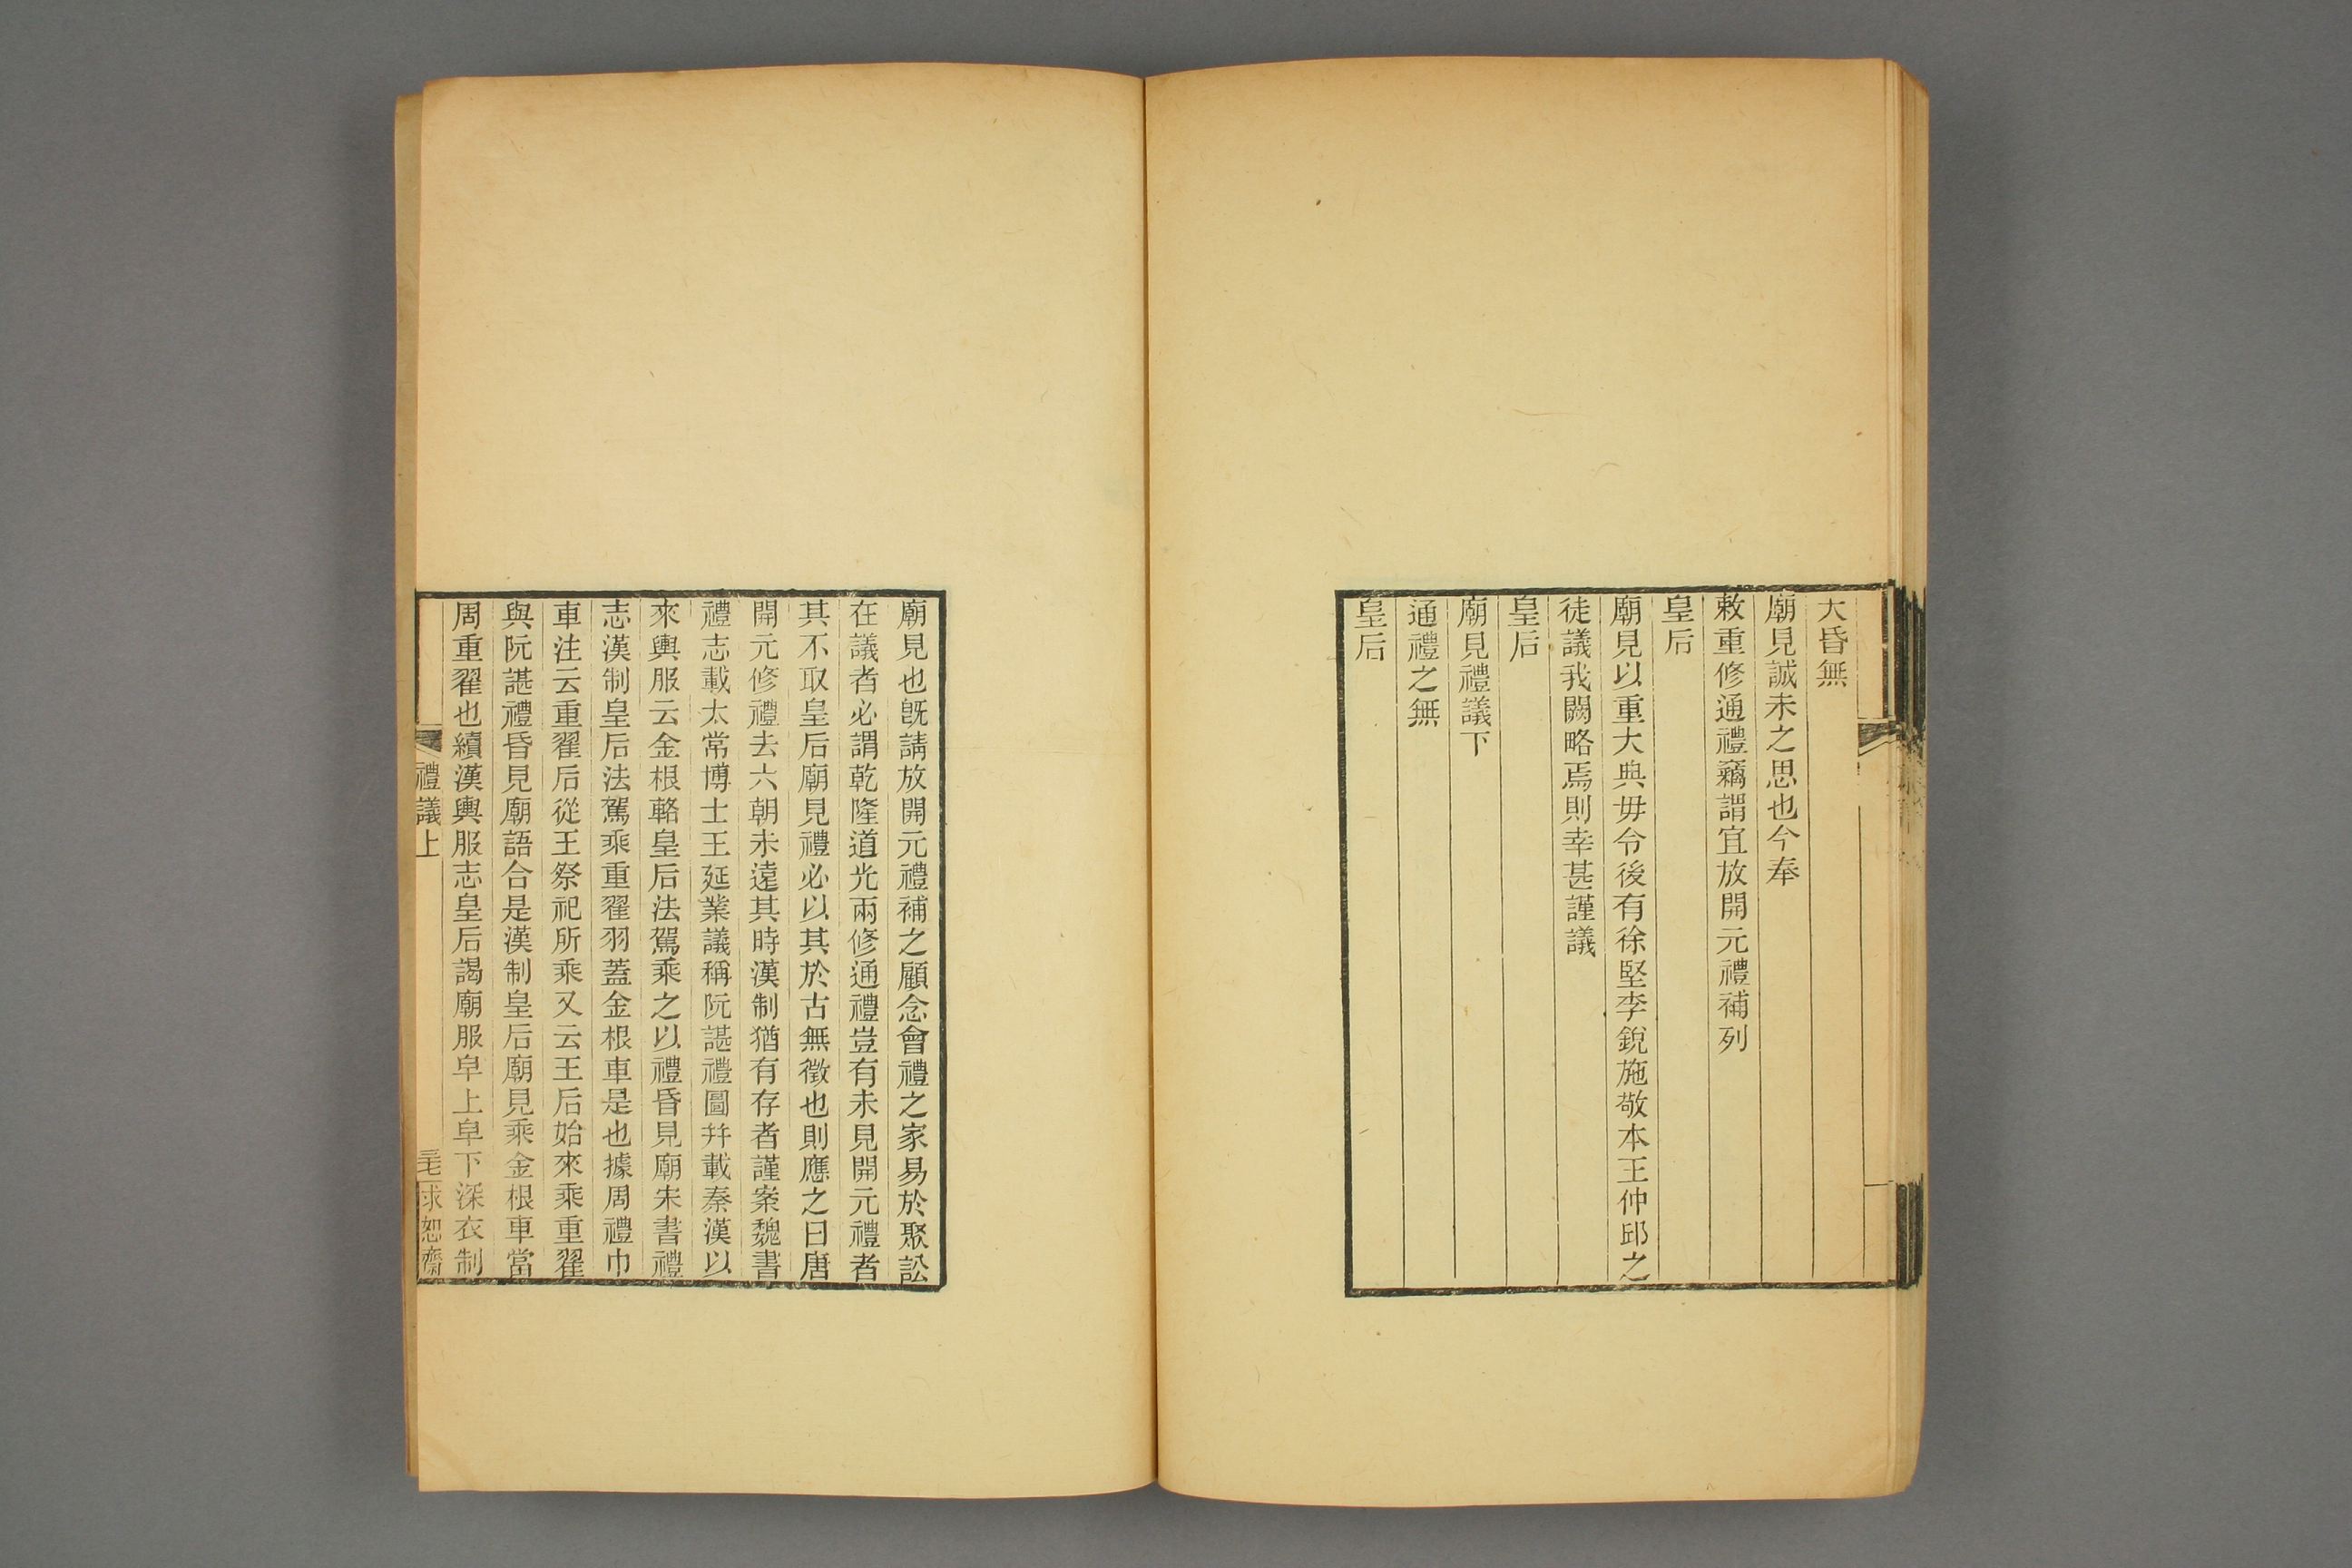 大昏無
廟見誠未之思也今奉
敕重修通禮竊謂宜放開元禮補列
皇后
廟見以重大典毋令後有徐堅李銳施敬本王仲邱之
徒議我闕略焉則幸甚謹議
皇后
廟見禮議下
通禮之無
皇后
廟見也既請放開元禮補之顧念會禮之家易於聚訟
在議者必謂乾隆道光兩修通禮豈有未見開元禮者
其不取皇后廟見禮必以其於古無徵也則應之曰唐
開元修禮去六朝未遠其時漢制猶有存者謹案魏書
禮志載太常博士王延業議稱阮諶禮圖并載秦漢以
來輿服云金根輅皇后法駕乘之以禮昏見廟宋書禮
志漢制皇后法駕乘重翟羽蓋金根車是也據周禮巾
車注云重翟后從王祭祀所乘又云王后始來乘重翟
與阮諶禮昏見廟語合是漢制皇后廟見乘金根車當
周重翟也續漢輿服志皇后謁廟服皁上皁下深衣制
禮議上
求恕齋